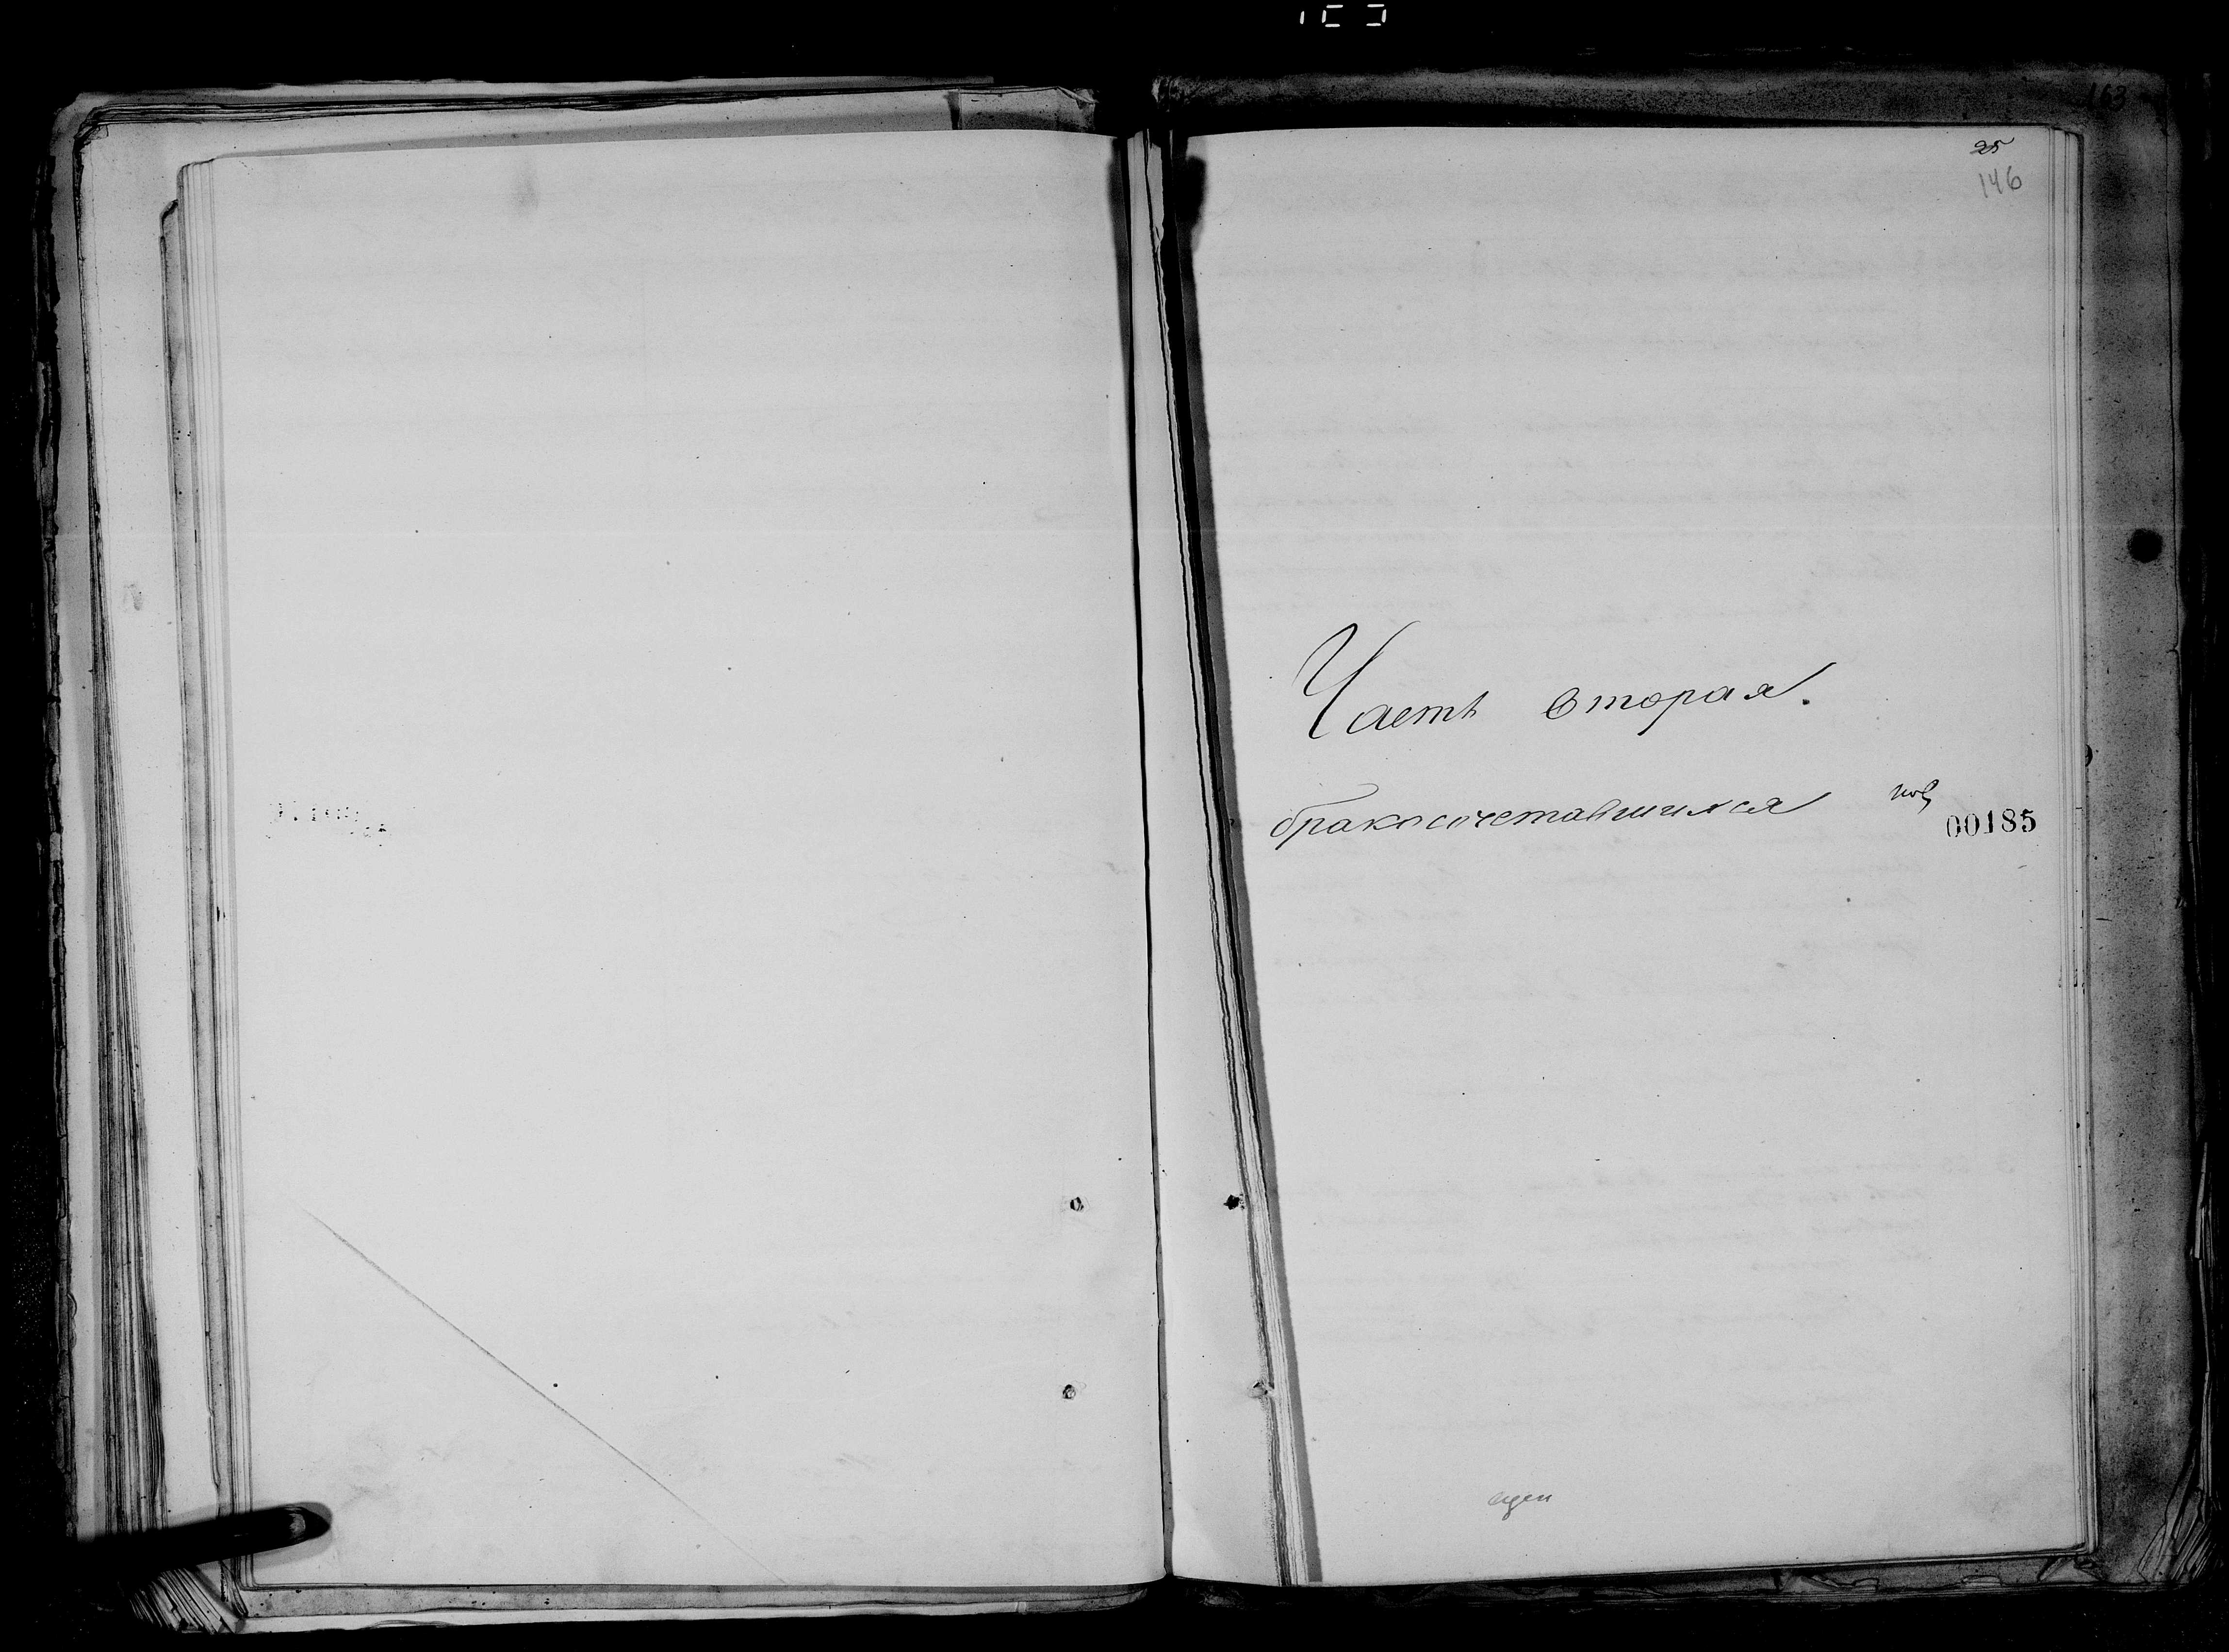 163
25
146
Часть вторая.
бракосочетавшихся
00185